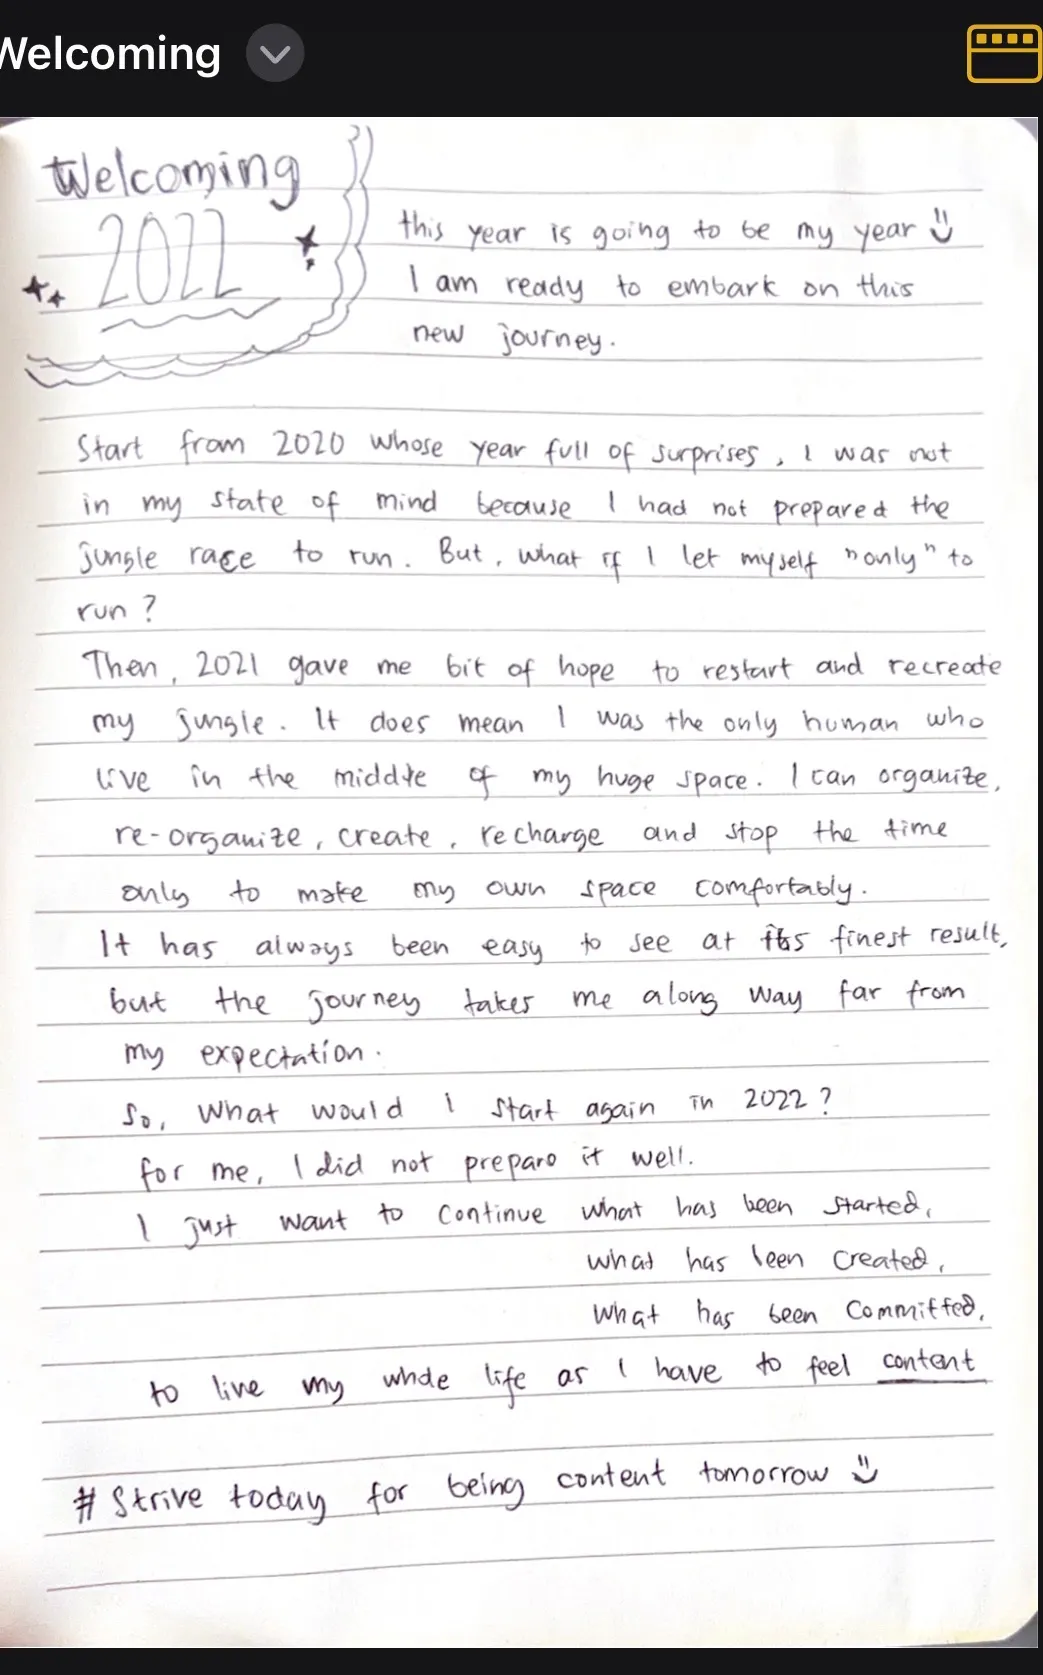 Welcoming
Welcoming
2022
this year is going to be my year
I am ready to embark on this
new journey.
Start from 2020 whose year full of surprises, I was not
in my state of mind because I had not prepared the
jungle race to run. But, what if I let myself "only" to
run?
Then, 2021 gave me bit of hope to restart and recreate
my jungle. It does mean I was the only human who
live in the middle of my huge space. I can organize,
re-organize, create, recharge and stop the time
only to make my own space comfortably.
It has always been easy to see at its finest result,
but the journey takes me along way far from
my expectation.
So, what would I start again in 2022?
for me, I did not prepare it well.
I just want to continue what has been started,
what has been created,
what has been committed,
to live my whole life as I have to feel content
# Strive today for being content tomorrow